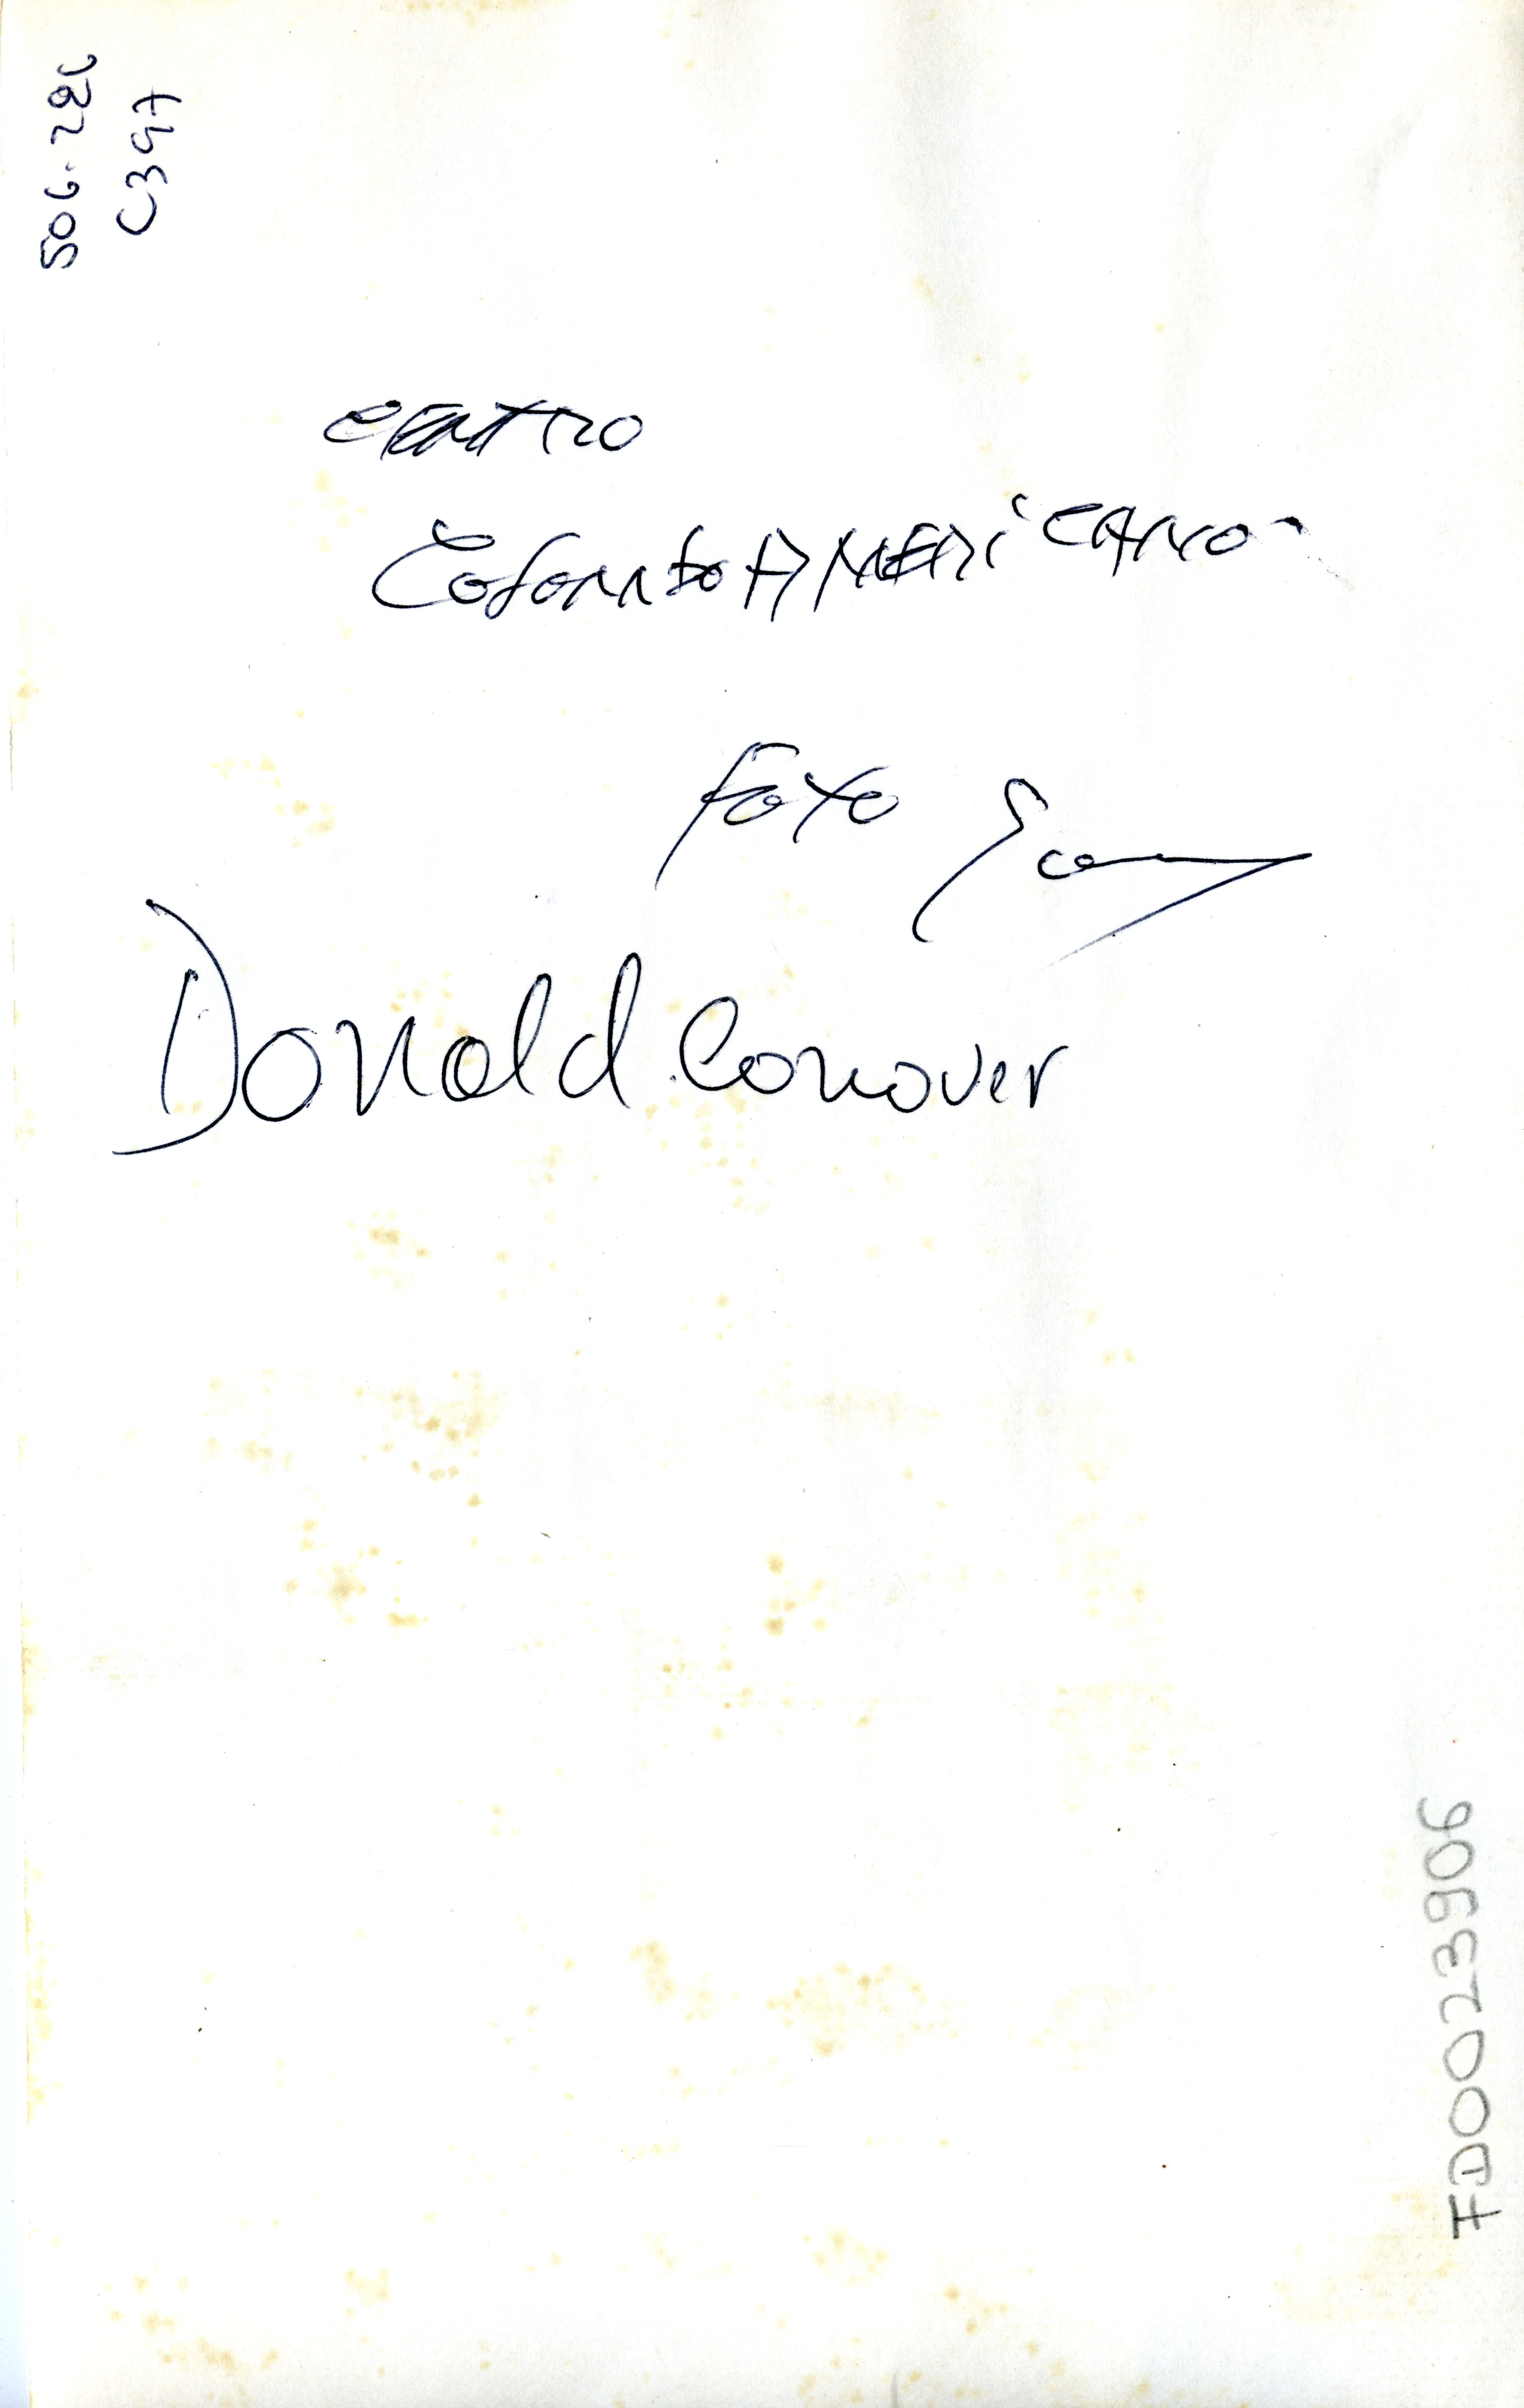 506.28
C397
CENTRO
COLOMBO AMERICANO-
Foto
Donald Conover
FD0023906